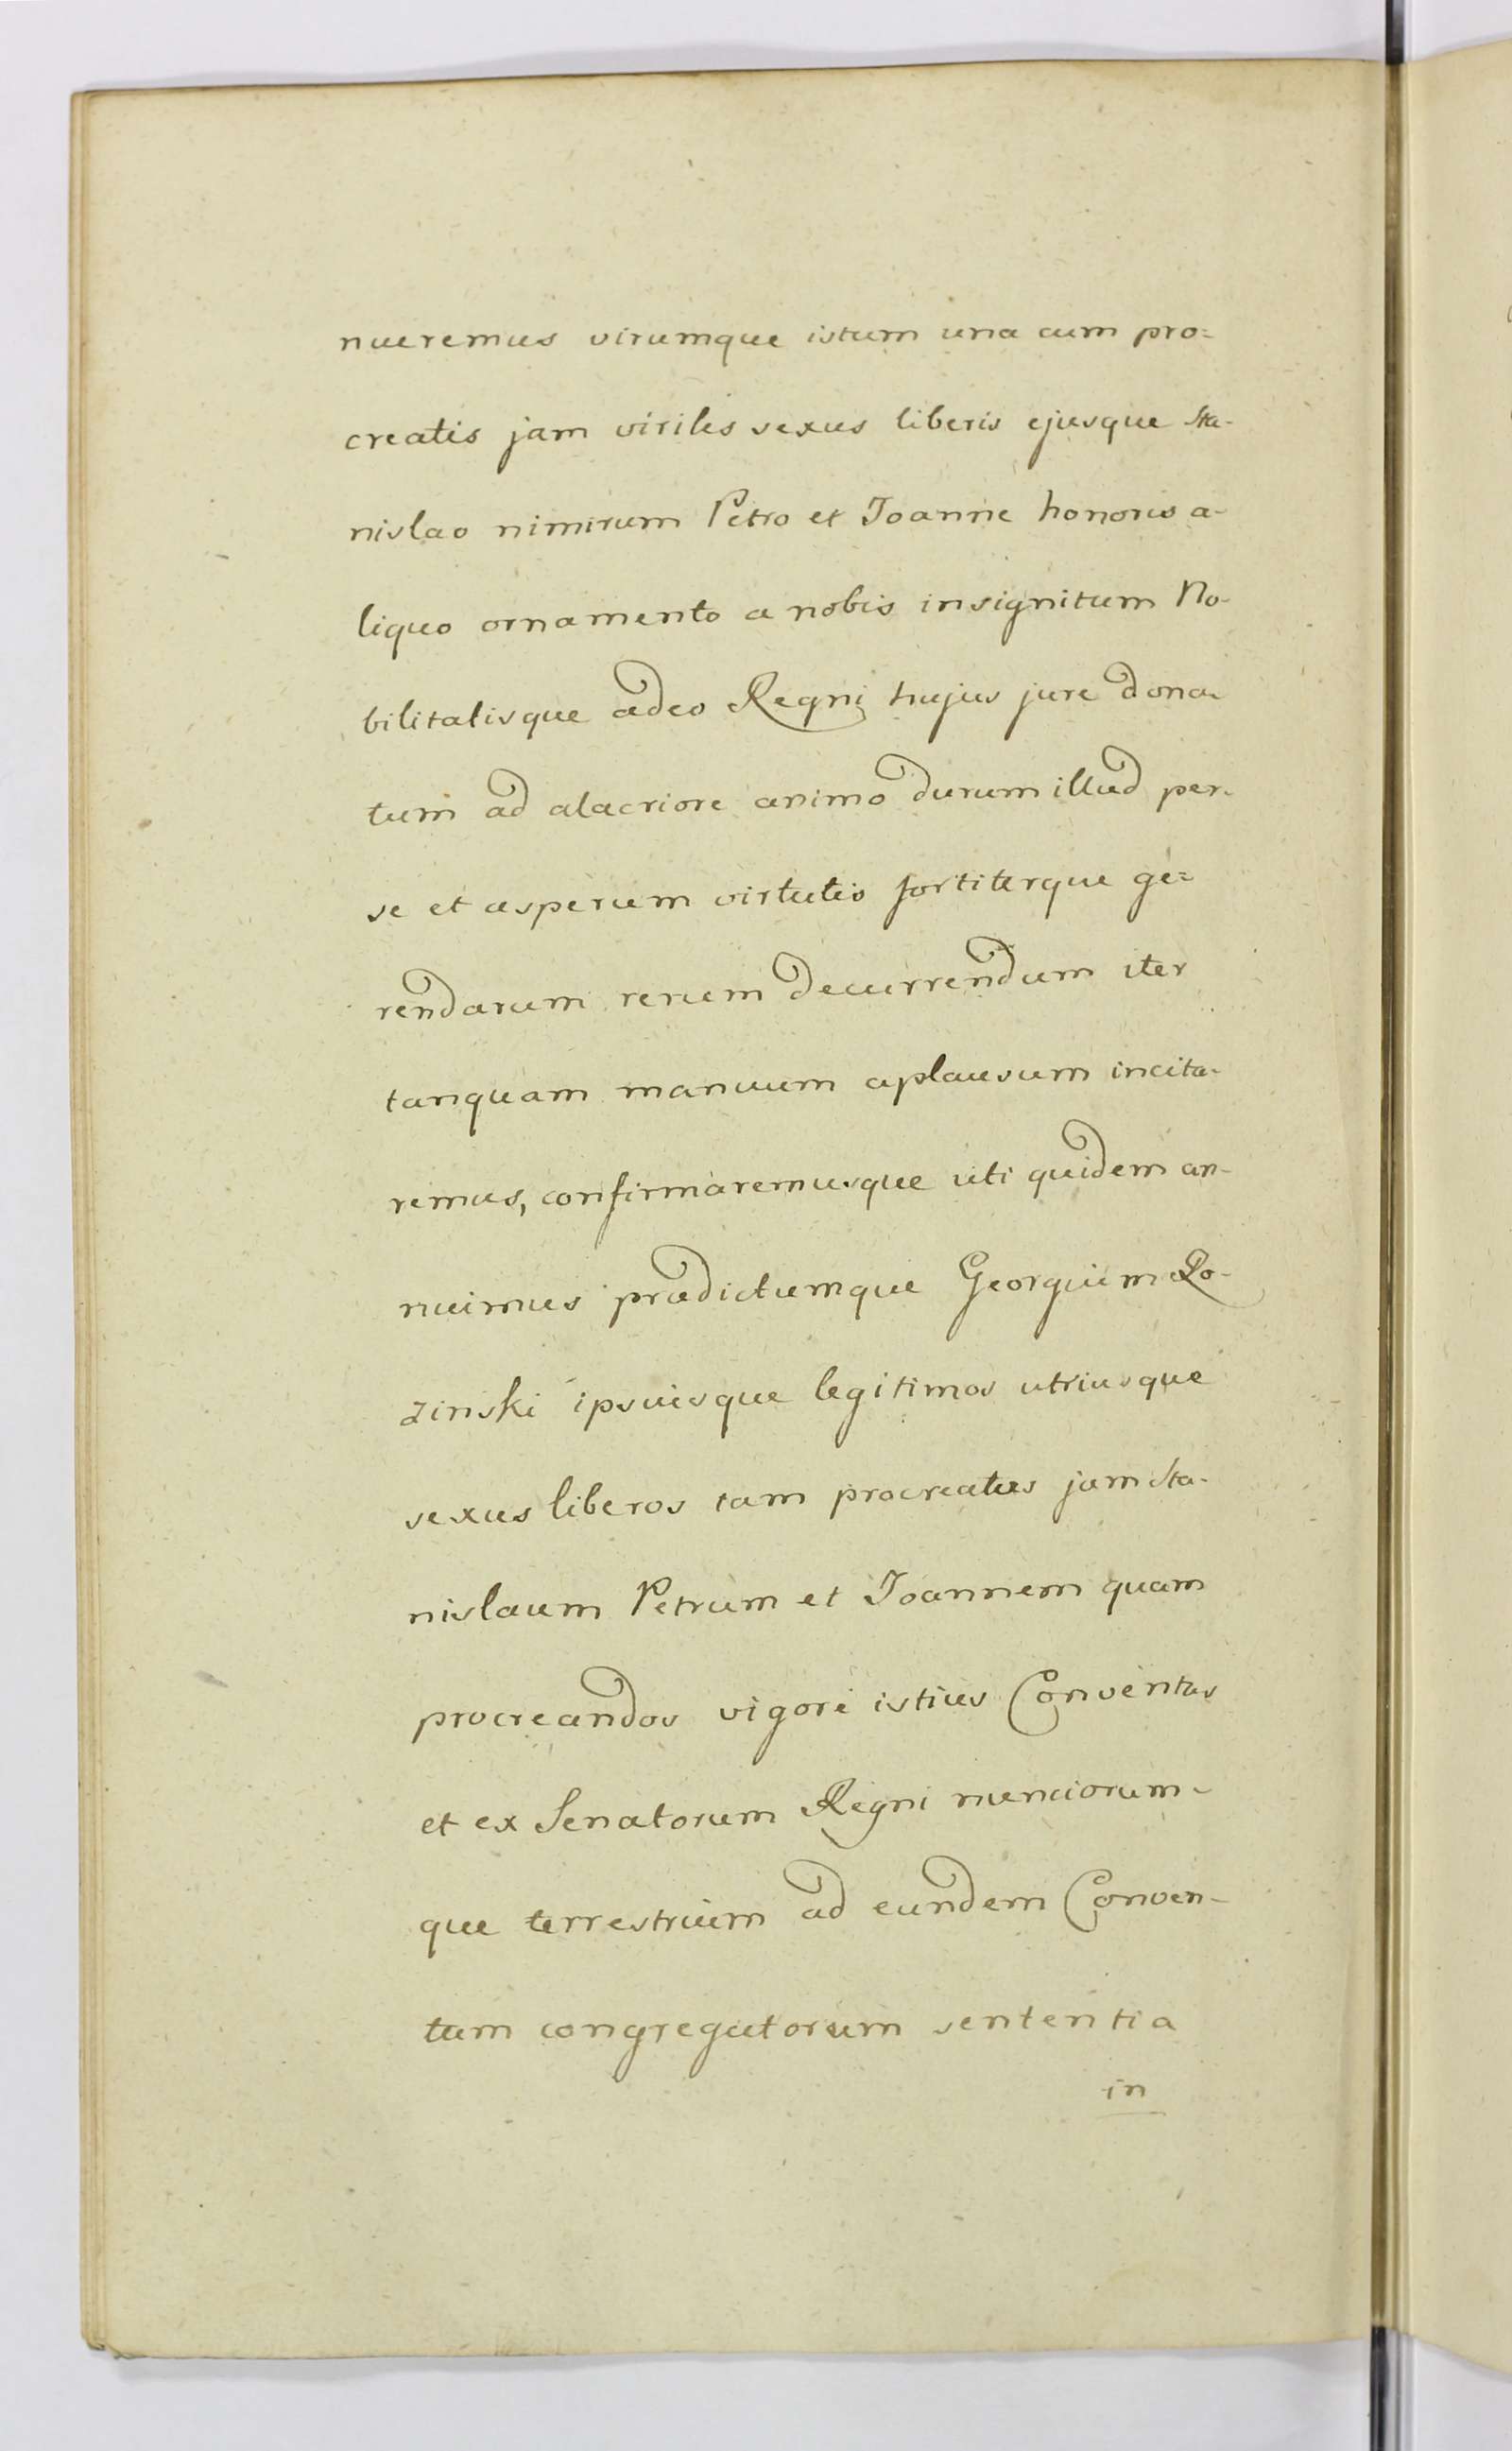 nueremus virumque istum una cum pro=
creatis jam virilis sexus liberis ejusque Sta-
nislao nimirum Petro et Joanne honoris a-
liquo ornamento a nobis insignitum No-
bilitatisque adeo Regni hujus jure dona-
tum ad alacriore animo durum illud per-
se et asperum virtutis fortiterque ge=
rendarum rerum decurrendum iter
tanquam manuum aplausum incita-
remus, confirmaremusque uti quidem an-
nuimus prædictumque Georgium Ro-
zinski ipsiusque legitimos utriusque
sexus liberos tam procreatus jam Sta-
nislaum Petrum et Joannem quam
procreandos vigore istius Conventus
et ex Senatorum Regni nunciorum-
que terrestrium ad eundem Conven-
tum congregatorum sententia
in